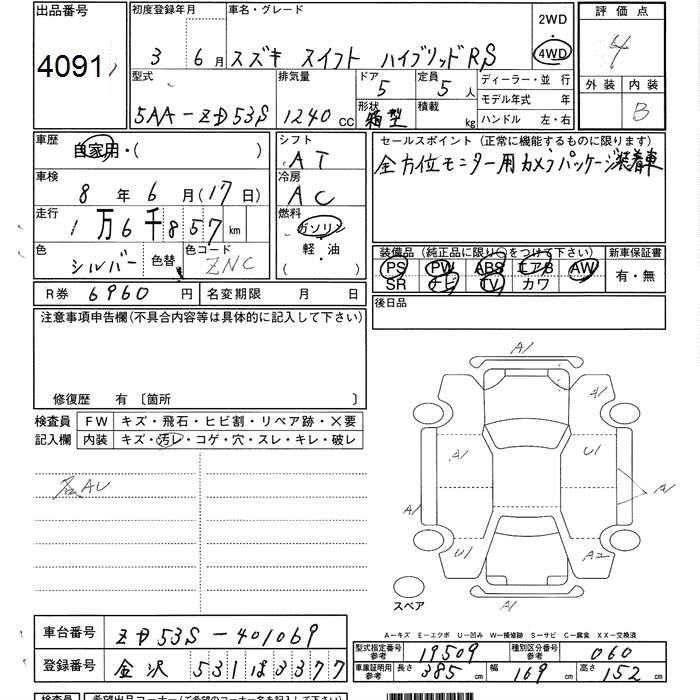 出品番号 初度登録年月 車名・グレード 2WD 評価点
4091 3 6月 スズキ スイフト ハイブリッドRS 4WD 4
型式 排気量 ドア 定員 ディーラー・並 行 外装 内装
5AA-ZD53S 1240 CC 5 5人 モデル年式 年 B
形状 箱型 積載 kg ハンドル 左・右
車歴 自家用・( ) シフト AT セールスポイント(正常に機能するものに限ります)
車検 8年 6月(17日) 冷房 AC 全方位モニター用カメラパッケージ装着車
走行 1万6千857km 燃料 ガソリン
軽・油
色 シルバー 色替 色コード ZNC ( )
装備品(純正品に限り○をつけて下さい) 新車保証書
PS PW ABS エアB AW 有・無
SR ナビ TV カワ
R券 6960円 名変期限 月 日 後日品
注意事項申告欄(不具合内容等は具体的に記入して下さい)
修復歴 有〔箇所 〕
検査員 FW キズ・飛石・ヒビ割・リペア跡・X要
記入欄 内装 キズ・汚レ・コゲ・穴・スレ・キレ・破レ
各AU
A1
A1
A1 U1
A1 A1
U1 A2
A1
スペア
A−キズ E−エクボ U−凹み W−補修跡 S−サビ C−腐食 XX−交換済
車台番号 ZD53S-401069
登録番号 金沢 531 は 3377
型式指定番号 参考 19509 種別区分番号 参考 060
車庫証明用 参考 長さ 385cm 幅 169cm 高さ 152cm
検査員 希望出品コーナー(ご希望のコーナー名を記入して下さい)